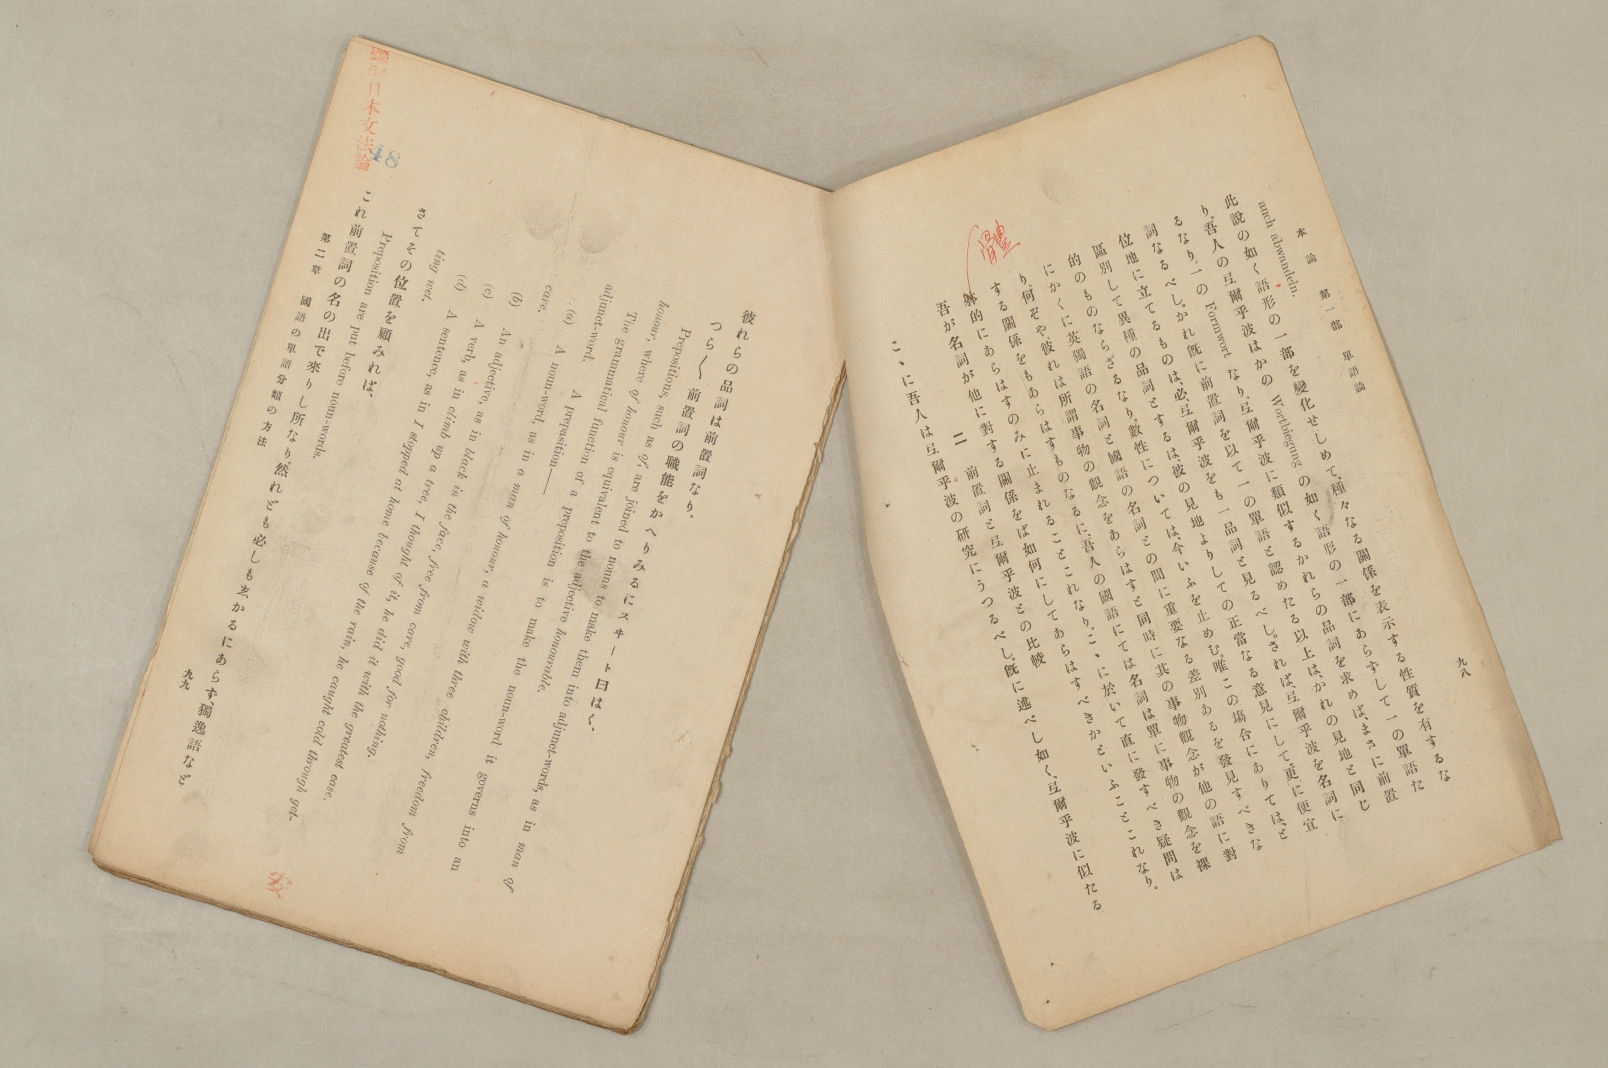 本論 第一部 單語論
九八
auch abwandeln.
此說の如く語形の一部を變化せしめて、種々なる關係を表示する性質を有するな
り。吾人の弖爾乎波はかの Wortbiegung の如く語形の一部にあらずして一の單語た
るなり。一の Formwort なり。弖爾乎波に類似するかれらの品詞を求めば、まさに前置
詞なるべし。かれ既に前置詞を以て一の單語と認めたる以上は、かれの見地と同じ
位地に立てるものは、必、弖爾乎波をも一品詞と見るべし。されば、弖爾乎波を名詞に
區別して異種の品詞とするは彼の見地よりしての正當なる意見にして、更に便宜
的のものならざるなり。數性については、今いふを止めむ。唯この塲合にありては、と
にかくに英獨語の名詞と國語の名詞との間に重要なる差別あるを發見すべきな
り。何ぞや、彼れは所謂事物の觀念をあらはすと同時に其の事物觀念が他の語に對
する關係をもあらはすものなるに、吾人の國語にては名詞は單に事物の觀念を裸
體
躰的にあらはすのみに止まれることこれなり。こゝに於いて直に發すべき疑問は
吾が名詞が他に對する關係をば如何にしてあらはすべきかといふことこれなり。
二 前置詞と弖爾乎波との比較
こゝに吾人は弖爾乎波の研究にうつるべし。既に述べし如く、弖爾乎波に似たる
彼れらの品詞は前置詞なり。
つら〱前置詞の職能をかへりみるにスヰート曰はく、
Prepositions, such as of, are joined to nouns to make them into adjunct-words, as in man of
honour, where of honour is equivalent to the adjective honourable.
The grammatical function of a preposition is to make the noun-word it governs into an
adjunct-word. A preposition——
(a) A noun-word, as in a man of honour, a widow with three children, freedom from
care.
(b) An adjective, as in black in the face, free from care, good for nothing.
(c) A verb, as in climb up a tree, I thought of it, he did it with the greatest ease.
(d) A sentence, as in I stopped at home because of the rain, he caught cold through get-
ting wet.
さてその位置を顧みれば、
Preposition are put before noun-words.
これ前置詞の名の出で來りし所なり。然れども必しも玄かるにあらず、獨逸語など
第二章 國語の單語分類の方法
九九
日本文法論
48